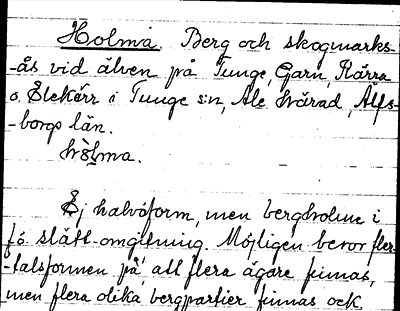 Holma. Berg och skogmarks-
-ås vid älven på Tunge, Garn, Rärra
o. Slekärr i Tunge s:n, Ale härad, Älfs-
-borgs län.
hòlma.
Ej halvöform, men bergholme i
fö. slätt-omgifning. Möjligen beror fler-
-talsformen på, att flera ägare finnas,
men flera olika bergpartier finnas ock